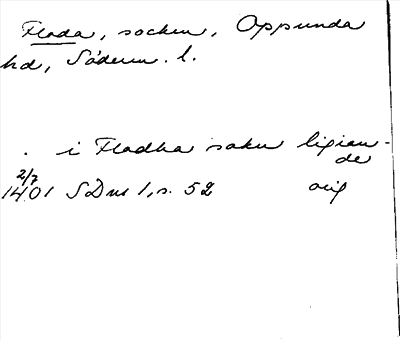 Floda, socken, Oppunda
hd, Söderm. l.
. i Flodha sokn ligian-
de
2/7
1401 SDns 1, s. 52 orig